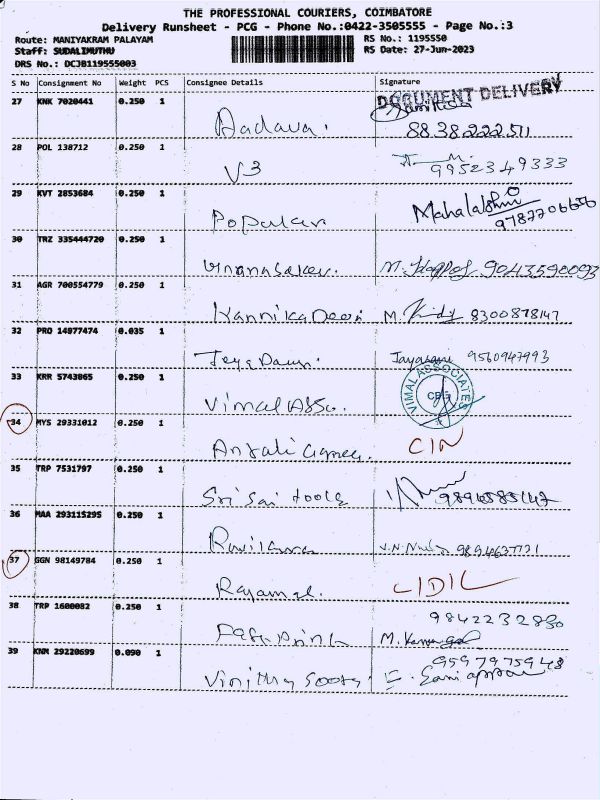 THE PROFESSIONAL COURIERS, COIMBATORE
Delivery Runsheet - PCG - Phone No.:0422-3505555 - Page No.:3
Route: MANIYAKRAM PALAYAM RS No.: 1195550
Staff: SUDALIMUTHU RS Date: 27-Jun-2023
DRS No.: DCJB119555003
S No Consignment No Weight PCS Consignee Details Signature
DOCUMENT DELIVERY
27 KNK 7020441 0.250 1
Aadava. 8838222511
28 POL 138712 0.250 1
V3 9952349333
29 KVT 2853684 0.250 1
Popular Mahalakshmi
9787706666
30 TRZ 335444720 0.250 1
Gnanasekar. M. 9043590093
31 AGR 700554779 0.250 1
Kannika Devi M. 8300878147
32 PRO 14977474 0.035 1
Jayarani 9560947993
33 KRR 5743865 0.250 1
Vimal Asso. VIMAL ASSOCIATES CBE
34 MYS 29331012 0.250 1
Anjali CIN
35 TRP 7531797 0.250 1
Sri Sai tools 9894585147
36 MAA 293115295 0.250 1
Ravikumar 9894637121
37 GGN 98149784 0.250 1
LIDIL
38 TRP 1600082 0.250 1
9842232830
Print M.
39 KNM 29220699 0.090 1
9597975948
Vinithy